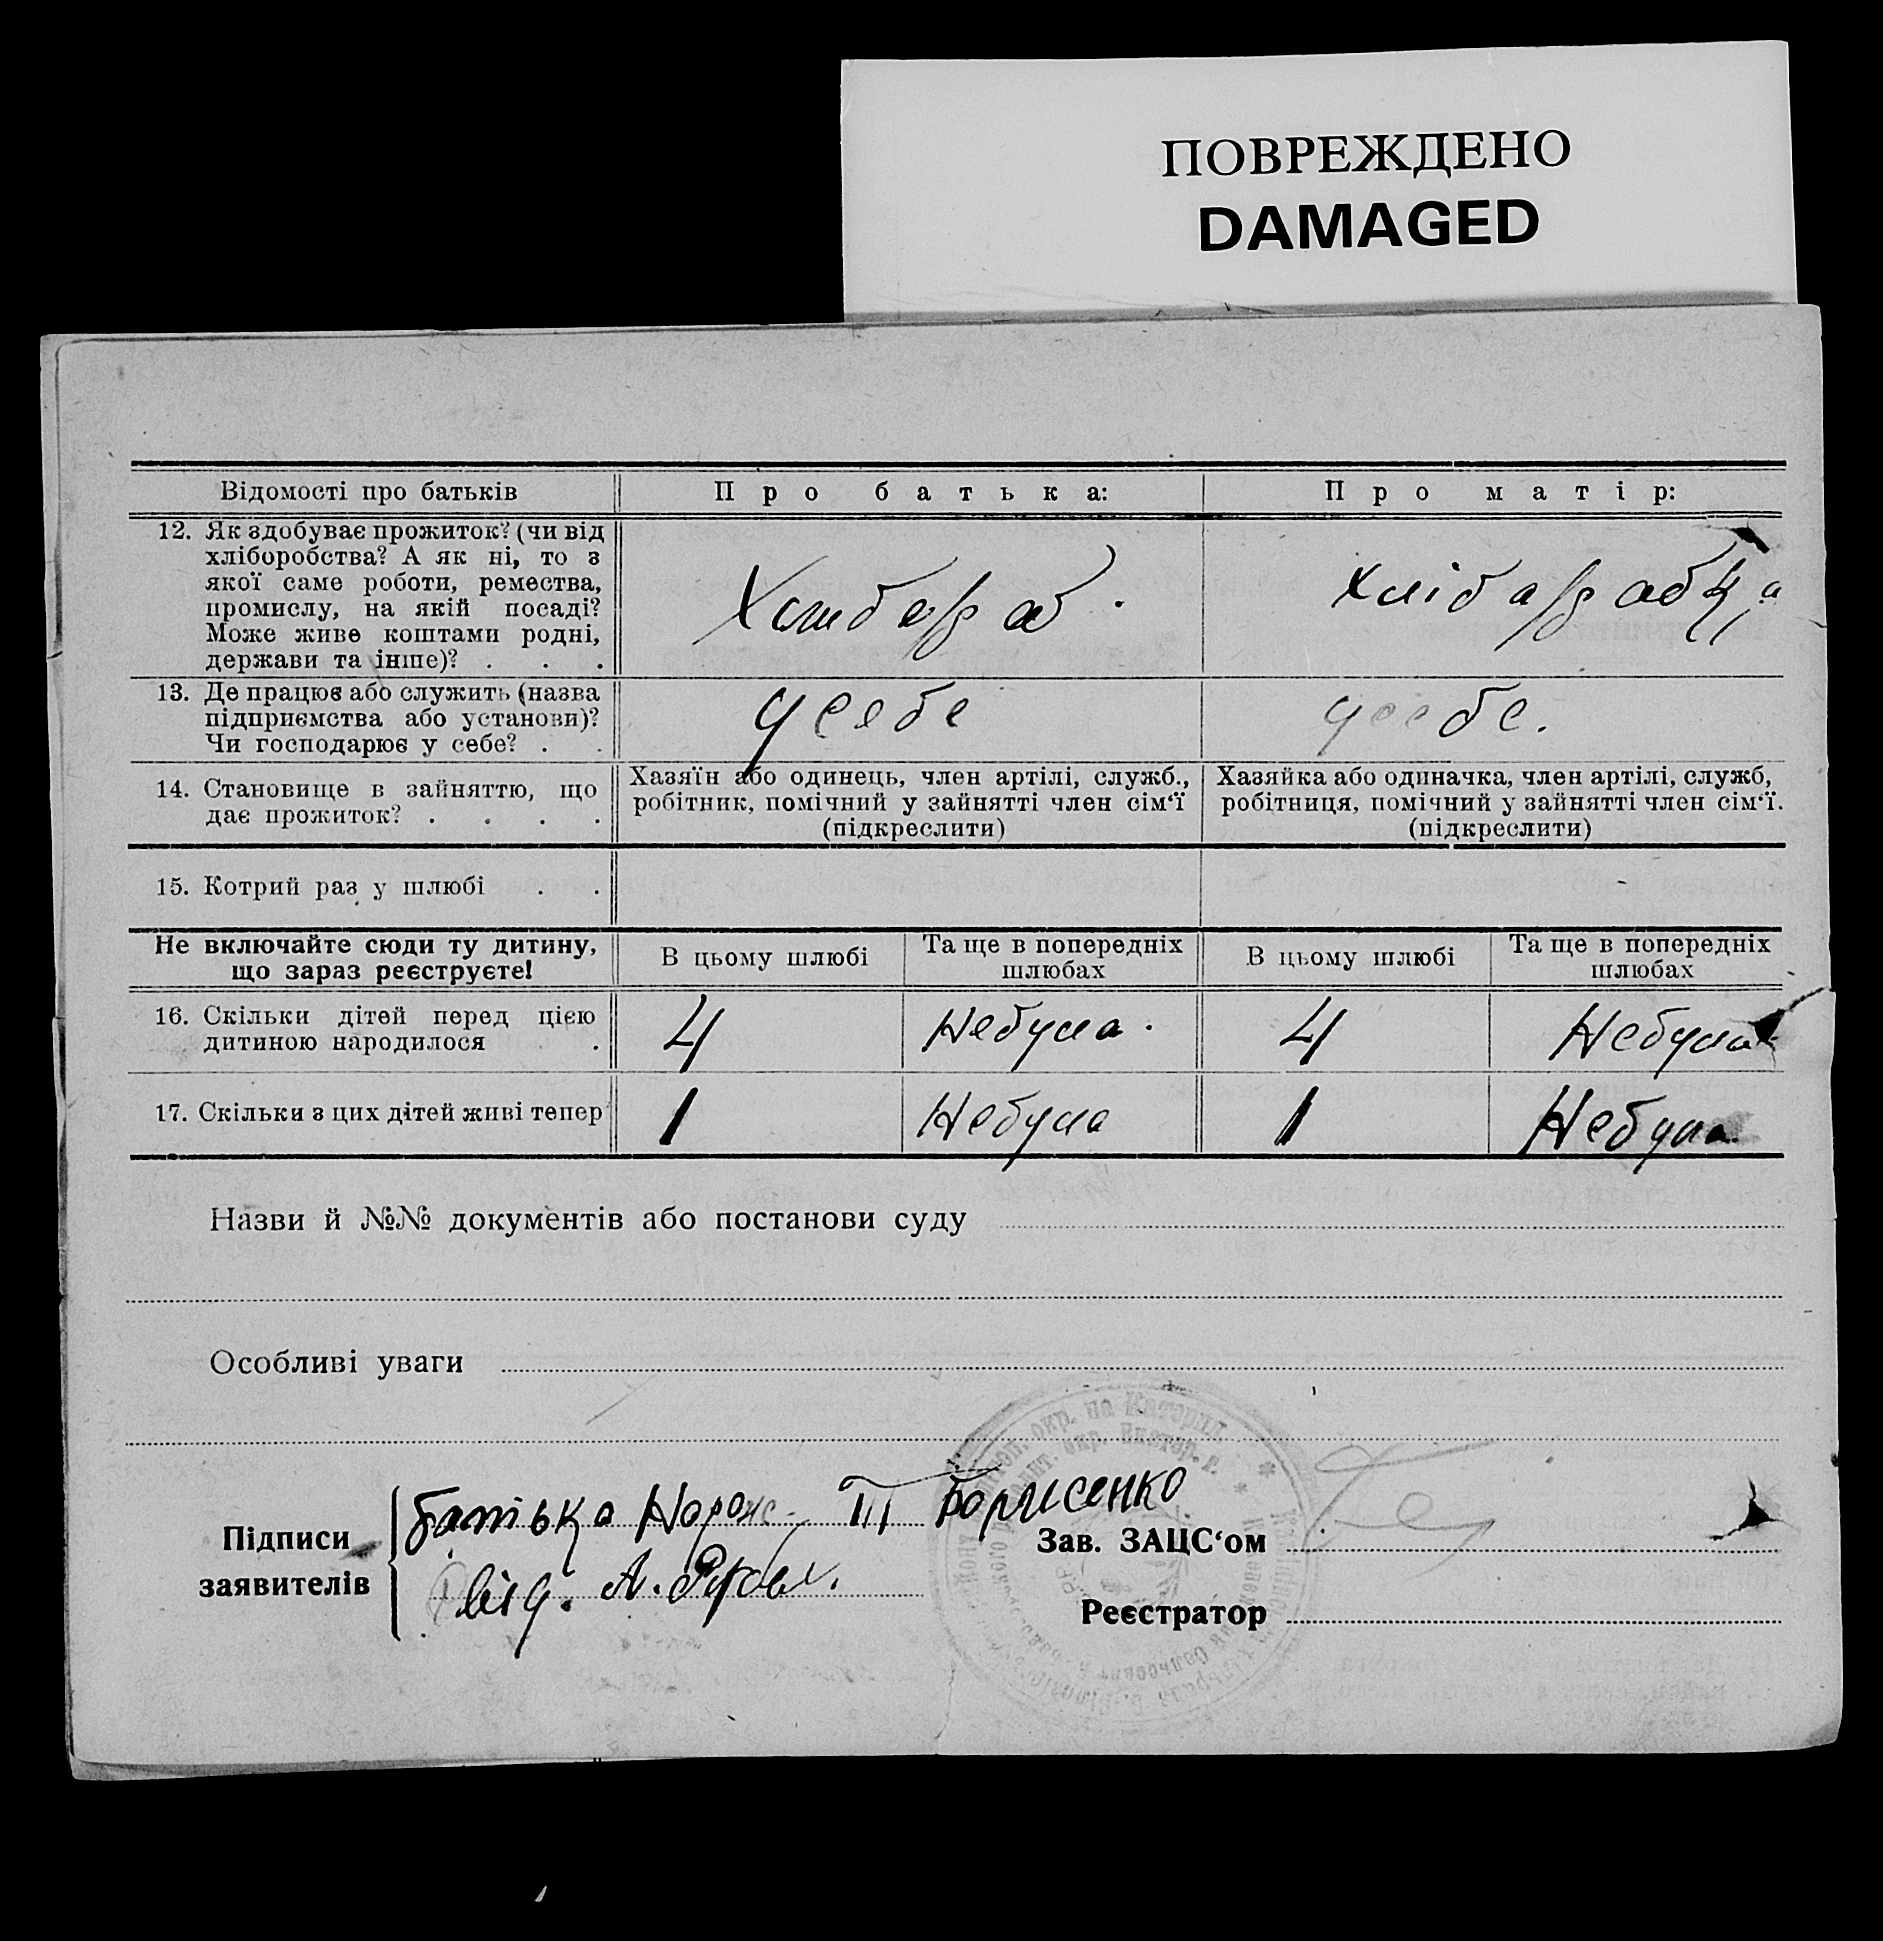 ПОВРЕЖДЕНО
DAMAGED
Відомості про батьків
Про батька:
Про матір:
12. Як здобуває прожиток? (чи від
хліборобства? А як ні, то з
якої саме роботи, ремества,
промислу, на якій посаді?
Може живе коштами родні,
держави та інше)? . . .
Хлибораб.
хлібарабка
13. Де працює або служить (назва
підприємства або установи)?
Чи господарює у себе? . .
усебе
усебе.
14. Становище в зайняттю, що
дає прожиток? . . . .
Хазяїн або одинець, член артілі, служб.,
робітник, помічний у зайнятті член сім‘ї
(підкреслити)
Хазяйка або одиначка, член артілі, служб,
робітниця, помічний у зайнятті член сім‘ї.
(підкреслити)
15. Котрий раз у шлюбі . .
Не включайте сюди ту дитину,
що зараз реєструєте!
В цьому шлюбі
Та ще в попередніх
шлюбах
В цьому шлюбі
Та ще в попередніх
шлюбах
16. Скільки дітей перед цією
дитиною народилося .
4
Небула.
4
Небула
17. Скільки з цих дітей живі тепер
1
Небула
1
Небула.
Назви й №№ документів або постанови суду
Особливі уваги
Підписи
заявителів
батька Борисенко
Зав. ЗАЦС‘ом
Реєстратор